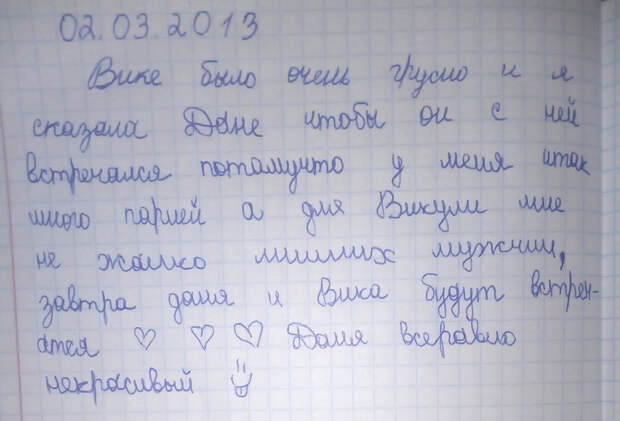 02.03.2013
Вике было очень грусно и я
сказала Дане чтобы он с ней
встречался потамучто у меня итак
много парней а для Викули мне
не жалко лишних мужчин,
завтра даня и Вика будут встреч-
ятся ♡ ♡ ♡ Даня всеравно
некрасивый